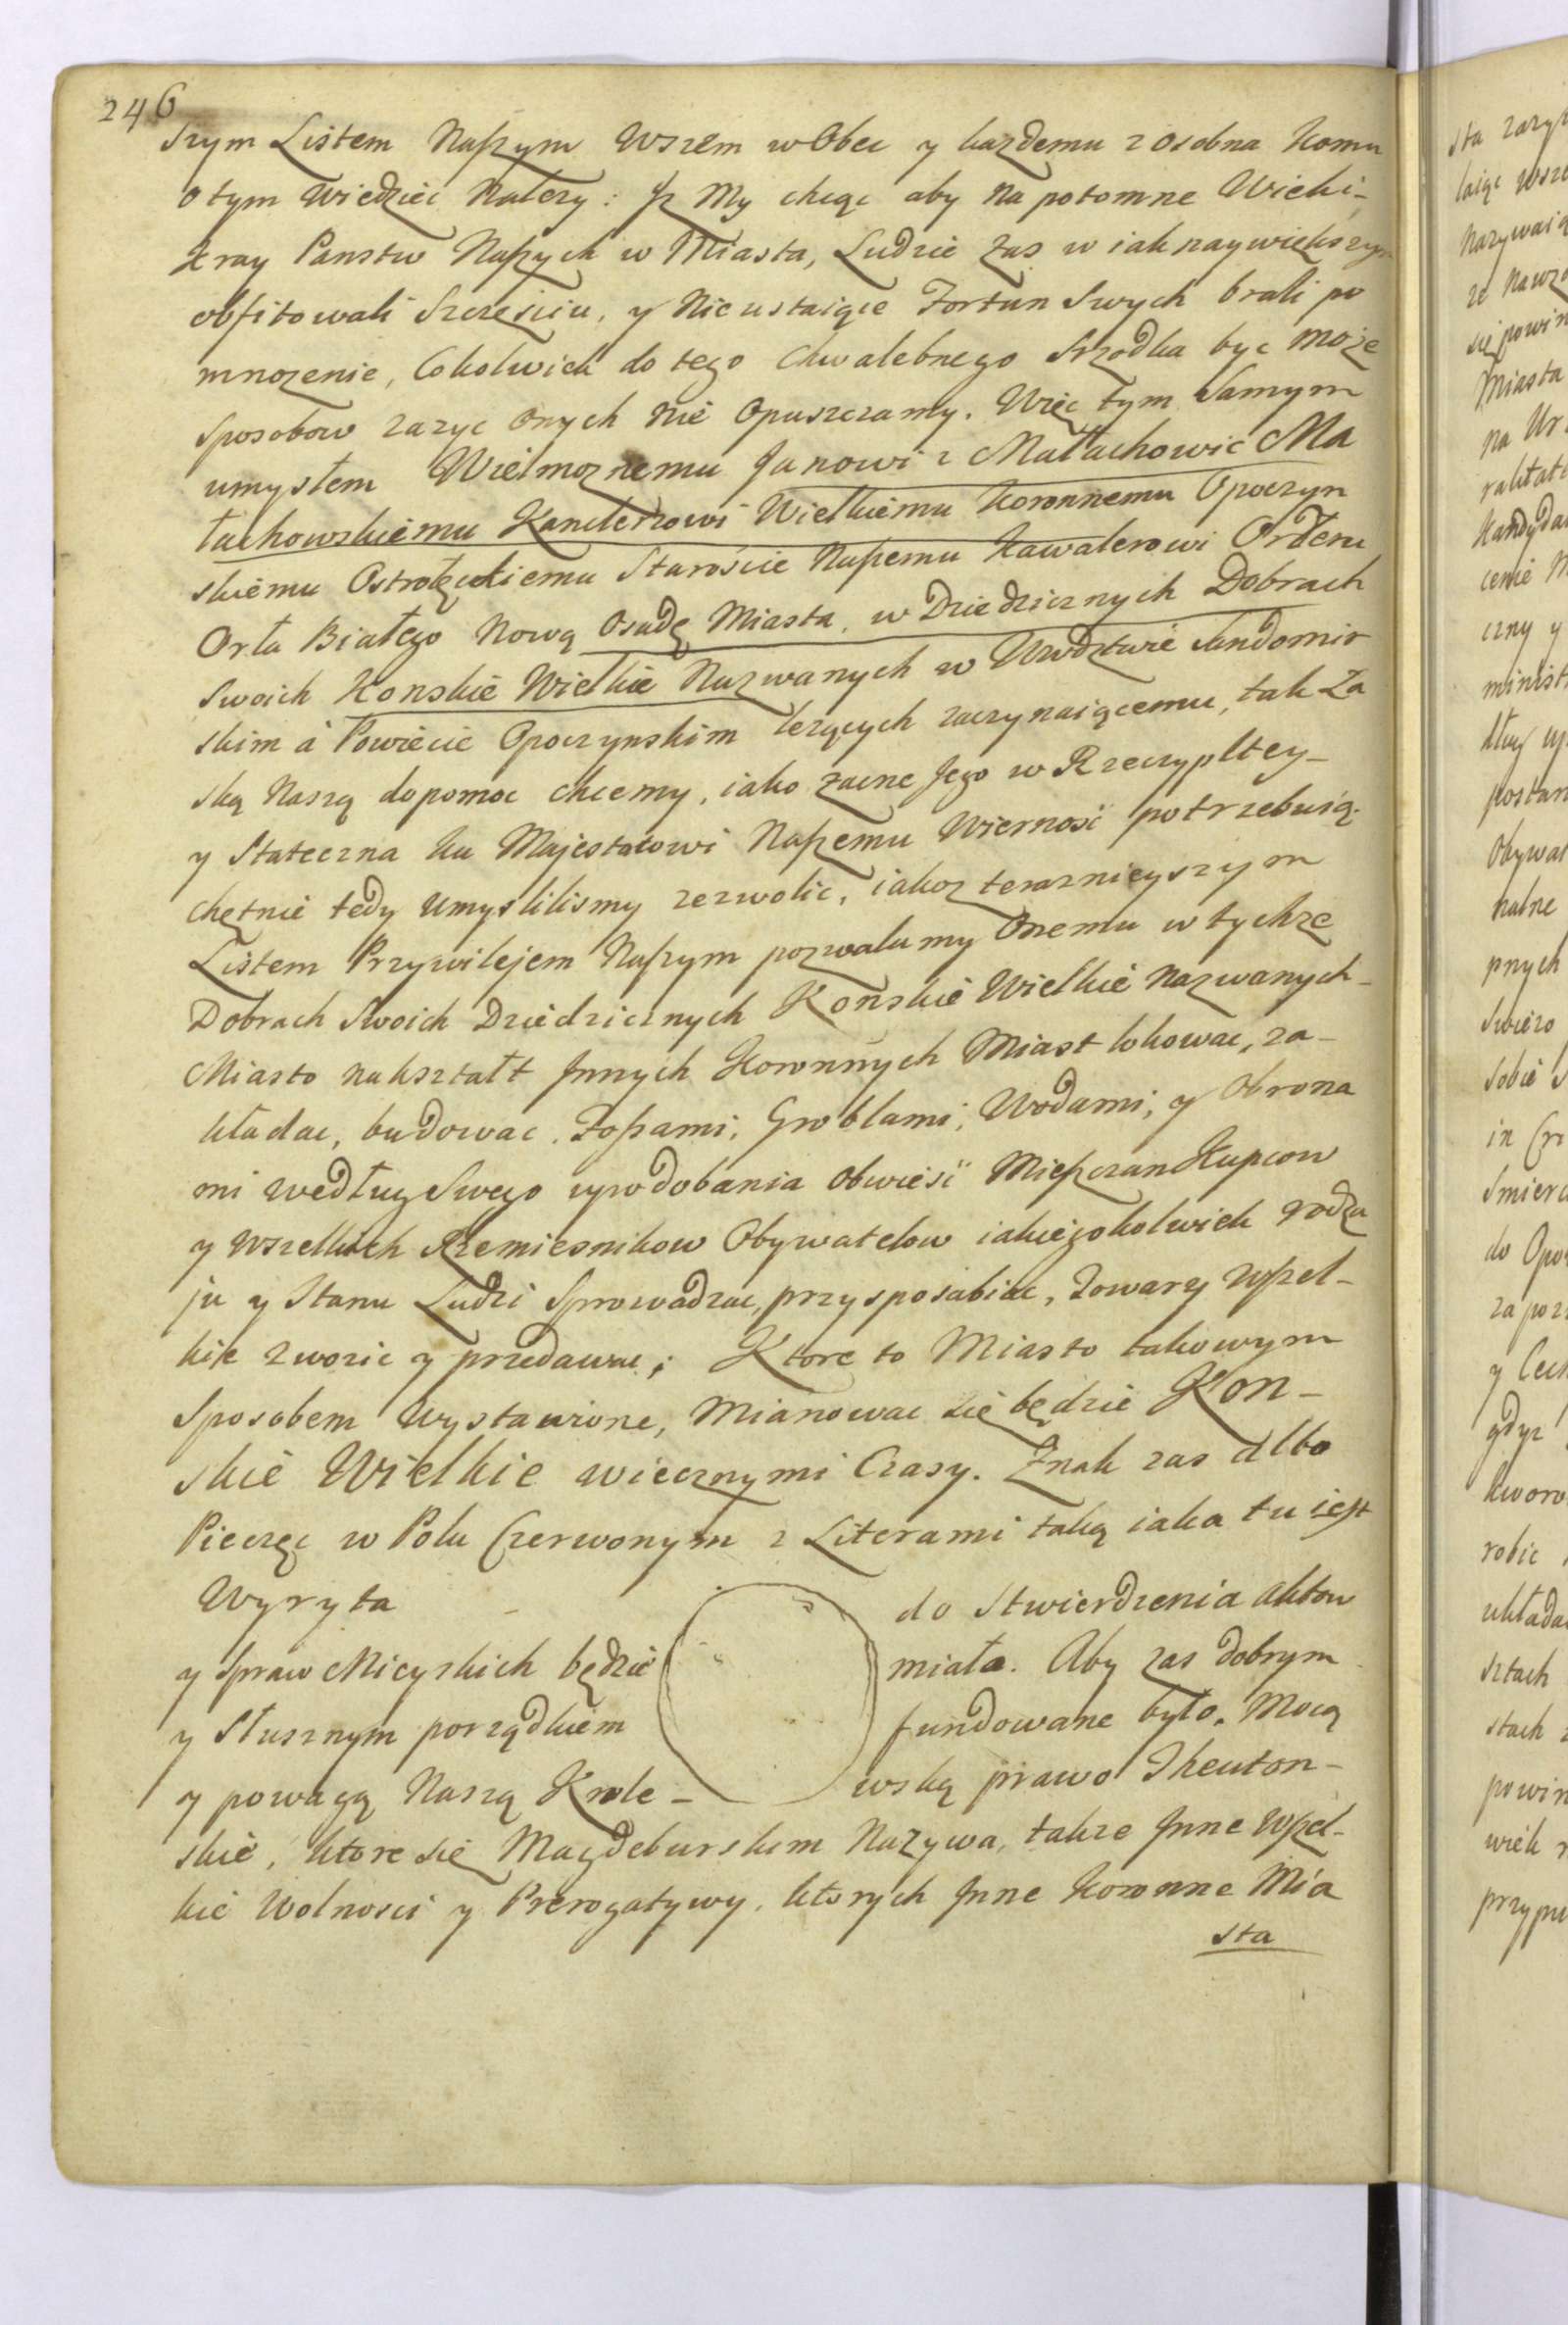 246
szym Listem Naszym Wszem w Obec y kazdemu z osobna Komu
o tym Wiedziec Nalezy: Jz My chcąc aby na potomne Wieki-
kray Panstw Naszych w Miasta, Ludzie zas w iak naywiększym
obfitowali Szczęsciu, y Nieustaiące Fortun Swych brali po
mnozenie, Cokolwiek do tego Chwalebnego Srzodka byc może
Sposobow zazyc onych nie Opuszczamy. Więc tym Samym
umysłem Wielmoznemu Janowi z Małachowic Ma
łachowskiemu Kanclerzowi Wielkiemu Koronnemu Opoczyn
skiemu Ostrołęckiemu Starościе Naszemu Kawalerowi Orderu
Orła Białego Nową Osadę Miasta, w Dziedzicznych Dobrach
Swoich Konskie Wielkie Nazwanych w Wwdztwie Sandomir
skim a Powiecie Opoczynskim lezących zaczynaiącemu, tak Ła
ską Naszą dopomoc chcemy, iako zacne Jego w Rzeczypltey-
y Stateczna ku Majestatowi Naszemu Wiernosć potrzebuią.
chętnie tedy umyslilismy zezwolic, iakoz teraznieyszym
Listem Przywilejem Naszym pozwalamy Onemu w tychze
Dobrach Swoich Dziedzicznych Konskie Wielkie nazwanych-
Miasto nakształt Jnnych Koronnych Miast lokowac, za-
kładac, budowac, Fossami, Groblami, Wodami, y Obrona
mi według Swego upodobania obwieść Mieszczan Kupcow
y wszelkich Rzemiesnikow Obywatelow iakiegokolwiek rodza
ju y Stanu Ludzi Sprowadzac, przysposabiac, Towary wszel-
kie zwozic y przedawac; Ktore to Miasto takowym
Sposobem wystawione, Mianowac się będzie Kon-
skie Wielkie wiecznymi Czasy. Znak zas albo
Pieczęc w Polu Czerwonym z Literami taką iaka tu iest
Wyryta do Stwierdzenia aktow
y Spraw Mieyskich będzie miała. Aby zas dobrym
y Słusznym porządkiem fundowane było, Mocą
y powagą Naszą Krole- wską prawo Theuton-
skie, ktore się Magdeburskim Nazywa, takze Jnne Wszel-
kie Wolnosci y Prerogatywy, ktorych Jnne Koronne Mia
sta